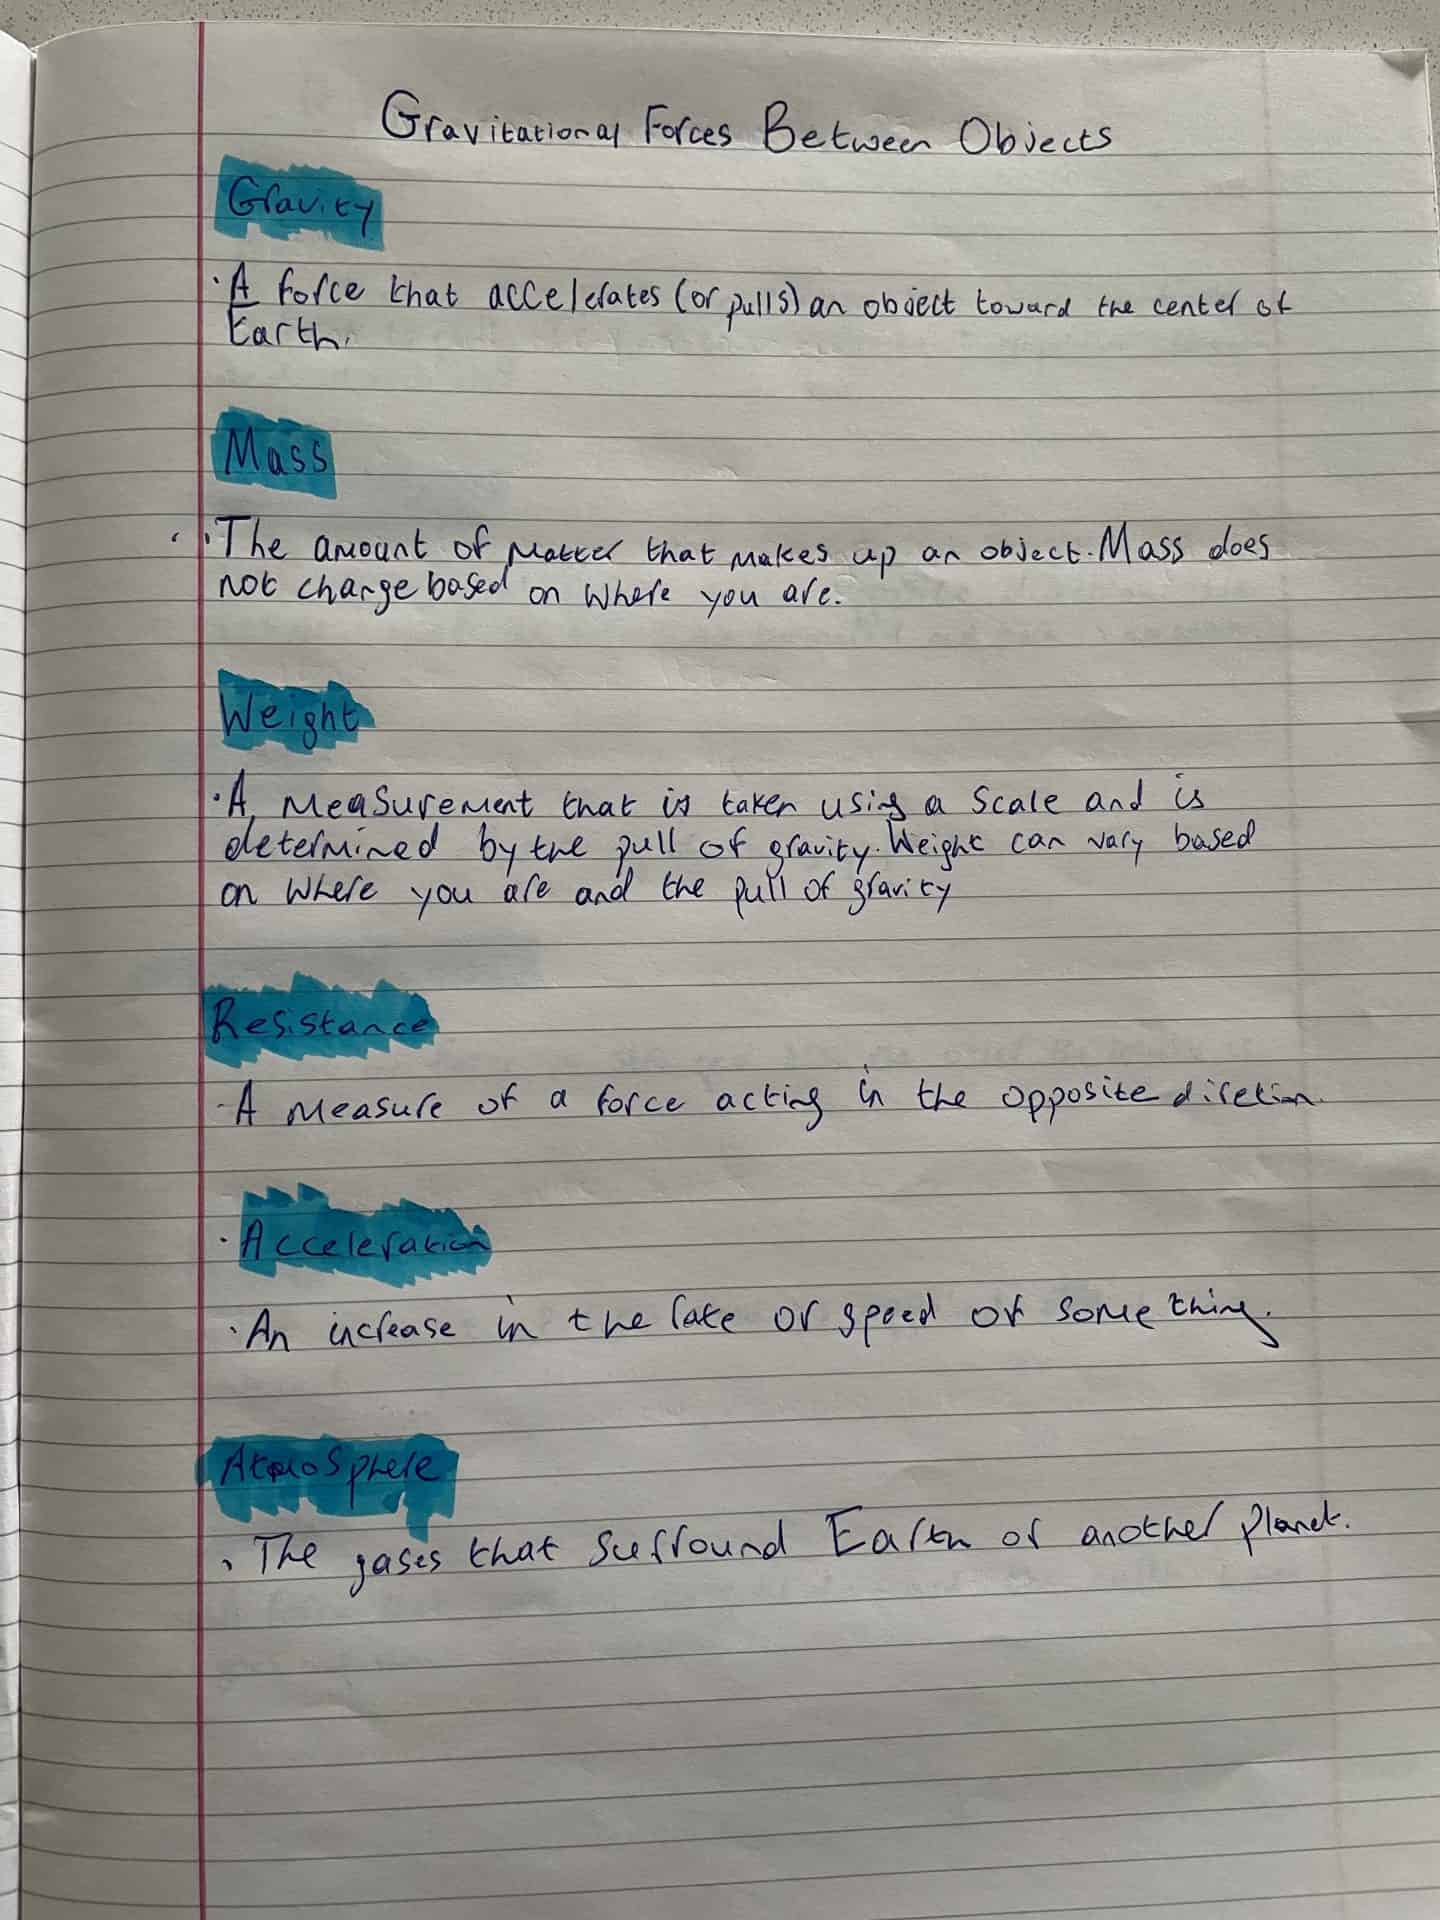 Gravitational Forces Between Objects
Gravity
· A force that accelerates (or pulls) an object toward the center of
Earth.
Mass
· The amount of matter that makes up an object. Mass does
not change based on where you are.
Weight
· A measurement that is taken using a scale and is
determined by the pull of gravity. Weight can vary based
on where you are and the pull of gravity
Resistance
- A measure of a force acting in the opposite diretion.
· Acceleration
· An increase in the rate or speed of something.
Atmosphere
· The gases that surround Earth or another planet.